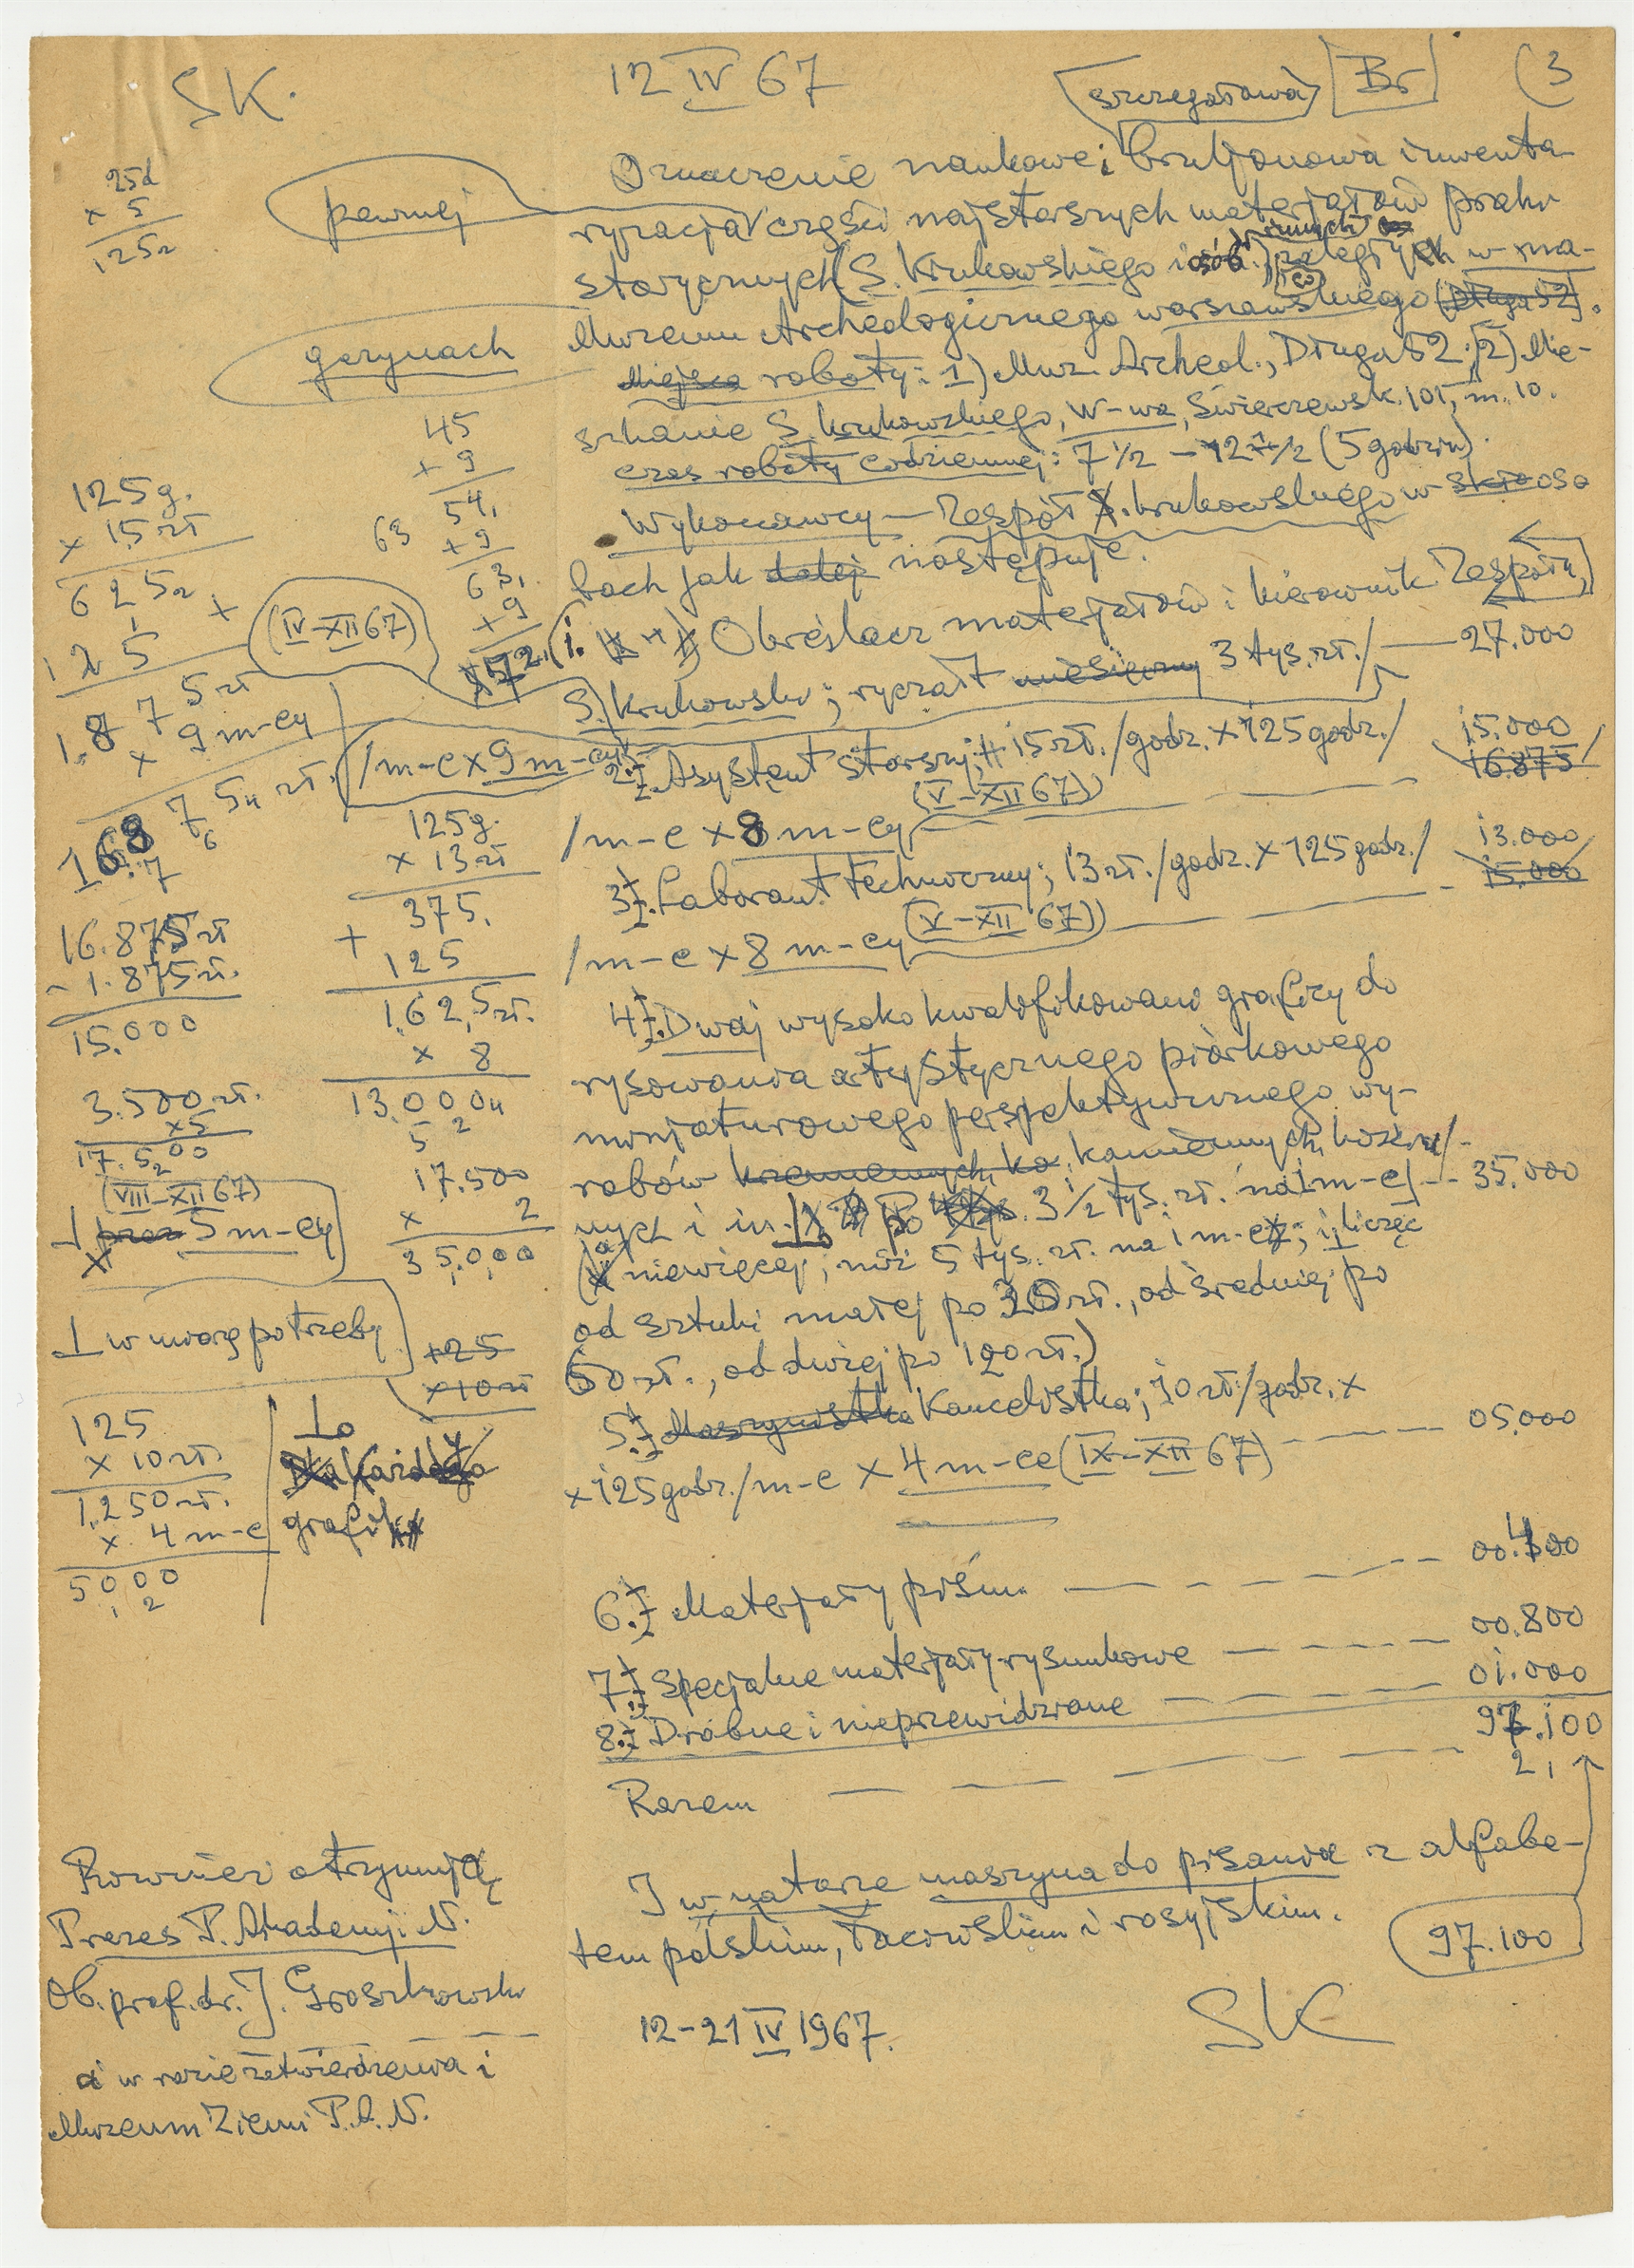 SK.
12 IV 67
szczegółowa
Br
(3
25d
× 5
125
pewnej
Oznaczenie naukowe i bruljonowa inwenta-
ryzacja części najstarszych materjałów prahi
storycznych (S. Krukowskiego i osób innych) zaległych w ma-
gazynach
Muzeum Archeologicznego warszawskiego (Długa 52).
Miejsca roboty: 1) Muz. Archeol., Długa 52; 2) Mie-
szkanie S. Krukowskiego, W-wa, Świerczewsk. 101, m. 10.
czas roboty codziennej: 7 1/2 – 12 1/2 (5 godzin).
Wykonawcy — Zespół S. Krukowskiego w oso
bach jak dalej następuje.
1. Określacz materjałów i kierownik Zespołu,
S. Krukowski; ryczałt miesięczny 3 tys. zł./ — 27.000
(IV–XII 67)
/m-c × 9 m-cy
2. Asystent starszy; 15 zł./godz. × 125 godz./
15.000
16.875
/m-c × 8 m-cy (V–XII 67)
3. Laborant techniczny; 13 zł./godz. × 125 godz./
13.000
15.000
/m-c × 8 m-cy (V–XII 67)
4. Dwaj wysoko kwalifikowani graficy do
rysowania artystycznego piórkowego
minjaturowego perspektywicznego wy-
robów krzemiennych, ka kamiennych, kościa/-
nych i in. po 3 1/2 tys. zł. na 1 m-c/ -- 35.000
(a niewięcej, niż 5 tys. zł. na 1 m-c; licząc
od sztuki małej po 30 zł., od średniej po
60 zł., od dużej po 120 zł.)
5. Maszynistka Kancelistka; 10 zł/godz. ×
× 125 godz./m-c × 4 m-ce (IX–XII 67) — 05.000
6. Materjały piśm. — 00.300
7. Specjalne materjały rysunkowe — 00.800
8. Drobne i nieprzewidziane — 01.000
Razem — 97.100
2 1
I w naturze maszyna do pisania z alfabe-
tem polskim, łacińskim i rosyjskim.
97.100
12–21 IV 1967.
SK
45
+ 9
54
+ 9
63
+ 9
72
63
125 g.
× 15 zł
625
125
1.875 zł
× 9 m-cy
16.875 zł.
16.875 zł
- 1.875 zł.
15.000
125 g.
× 13 zł
375
+ 125
1.625 zł.
× 8
13.000
5 2
3.500 zł.
× 5
17.500
17.500
× 2
35.000
(VIII–XII 67)
przez 5 m-cy
w miarę potrzeby
125
× 10 zł
125
× 10 zł.
1.250 zł.
× 4 m-c
5000
Dla każdego
grafik
Również otrzymują
Prezes P. Akademji N.
Ob. prof. dr. J. Groszkowski
a w razie zatwierdzenia i
Muzeum Ziemi P.A.N.